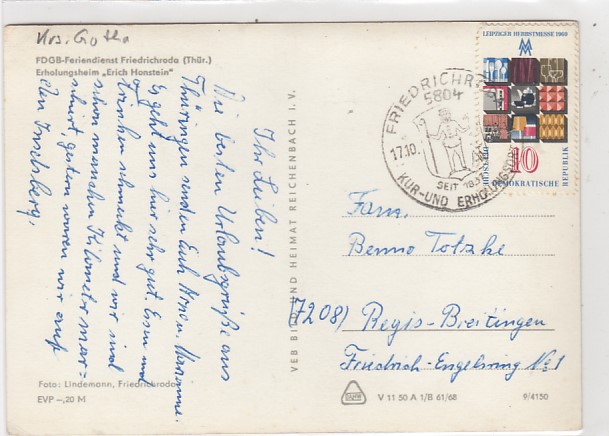 Krs. Gotha
FDGB-Feriendienst Friedrichroda (Thür.)
Erholungsheim „Erich Honstein"
Ihr Lieben!
Die besten Urlaubsgrüße aus
Thüringen senden Euch Arno u. Marianne.
Es geht uns hier sehr gut. Essen und
Trinken schmeckt und wir sind
schon manchen Kilometer mar=
schiert, gestern waren wir auf
den Inselsberg.
Foto: Lindemann, Friedrichroda
EVP -,20 M
VEB BILD UND HEIMAT REICHENBACH I. V.
LEIPZIGER HERBSTMESSE 1969
MM
10
DEMOKRATISCHE REPUBLIK
FRIEDRICHRODA
5804
17.10.
SEIT 1837
KUR- UND ERHOLUNGSORT
Fam.
Benno Totzke
(7208) Regis-Breitingen
Friedrich-Engelsring No 1
V 11 50 A 1/B 61/68
9/4150